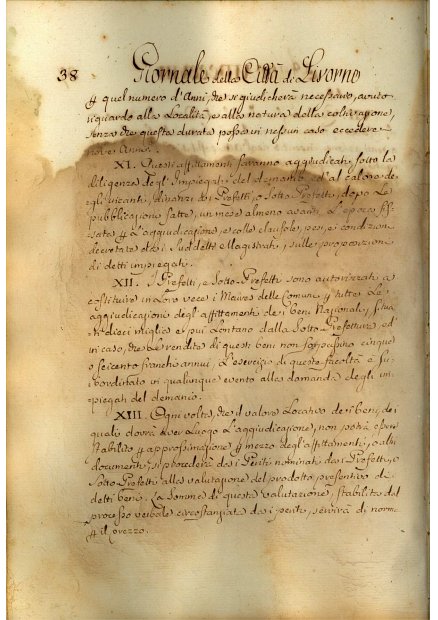 38 Giornale della Città di Livorno
quel numero d'Anni, che si giudicherà necessario, avuto
riguardo alla Località, e alla natura della coltivazione,
senza che questa durata possa in nessun caso eccedere
nove Anni.
XI. Questi affittamenti saranno aggiudicati, sotto la
diligenza degl' Impiegati del demanio, e al calore de
gli vicanti, dinanzi dei Prefetti, o Sotto Prefetti, dopo Le
pubblicazioni fatte, un mese almeno avanti L'epoca fis
sata l'aggiudicazione, e colle clausole, pesi, e condizioni
decretate dai Suddetti Magistrati, sulle proposizioni
di detti impiegati.
XII. I Prefetti, e Sotto-Prefetti sono autorizzati a
costituire in Loro vece i Maires delle Comuni tutte Le
aggiudicazioni degl' affittamenti de i beni Nazionali, situa
ti dieci miglia e più Lontano dalla Sotto-Prefettura, ed
in caso, che Le rendite di questi beni non sorpassino cinque
o seicento franchi annui, L'esercizio di questa facoltà è su
bordinato in qualunque evento alla domanda degli im
piegati del demanio.
XIII. Ogni volta, che il valore Locativo dei beni, dei
quali dovrà aver Luogo L'aggiudicazione, non potrà essere
stabilito approssimazione mezzo degl' affittamenti, o altri
documenti, si procederà dai Periti nominati dai Prefetti, o
Sotto Prefetti alla valutazione del prodotto presentivo de
detti beni. La somma di questa valutazione, stabilita dal
processo verbale circostanziato dai periti, servirà di norma
il prezzo.